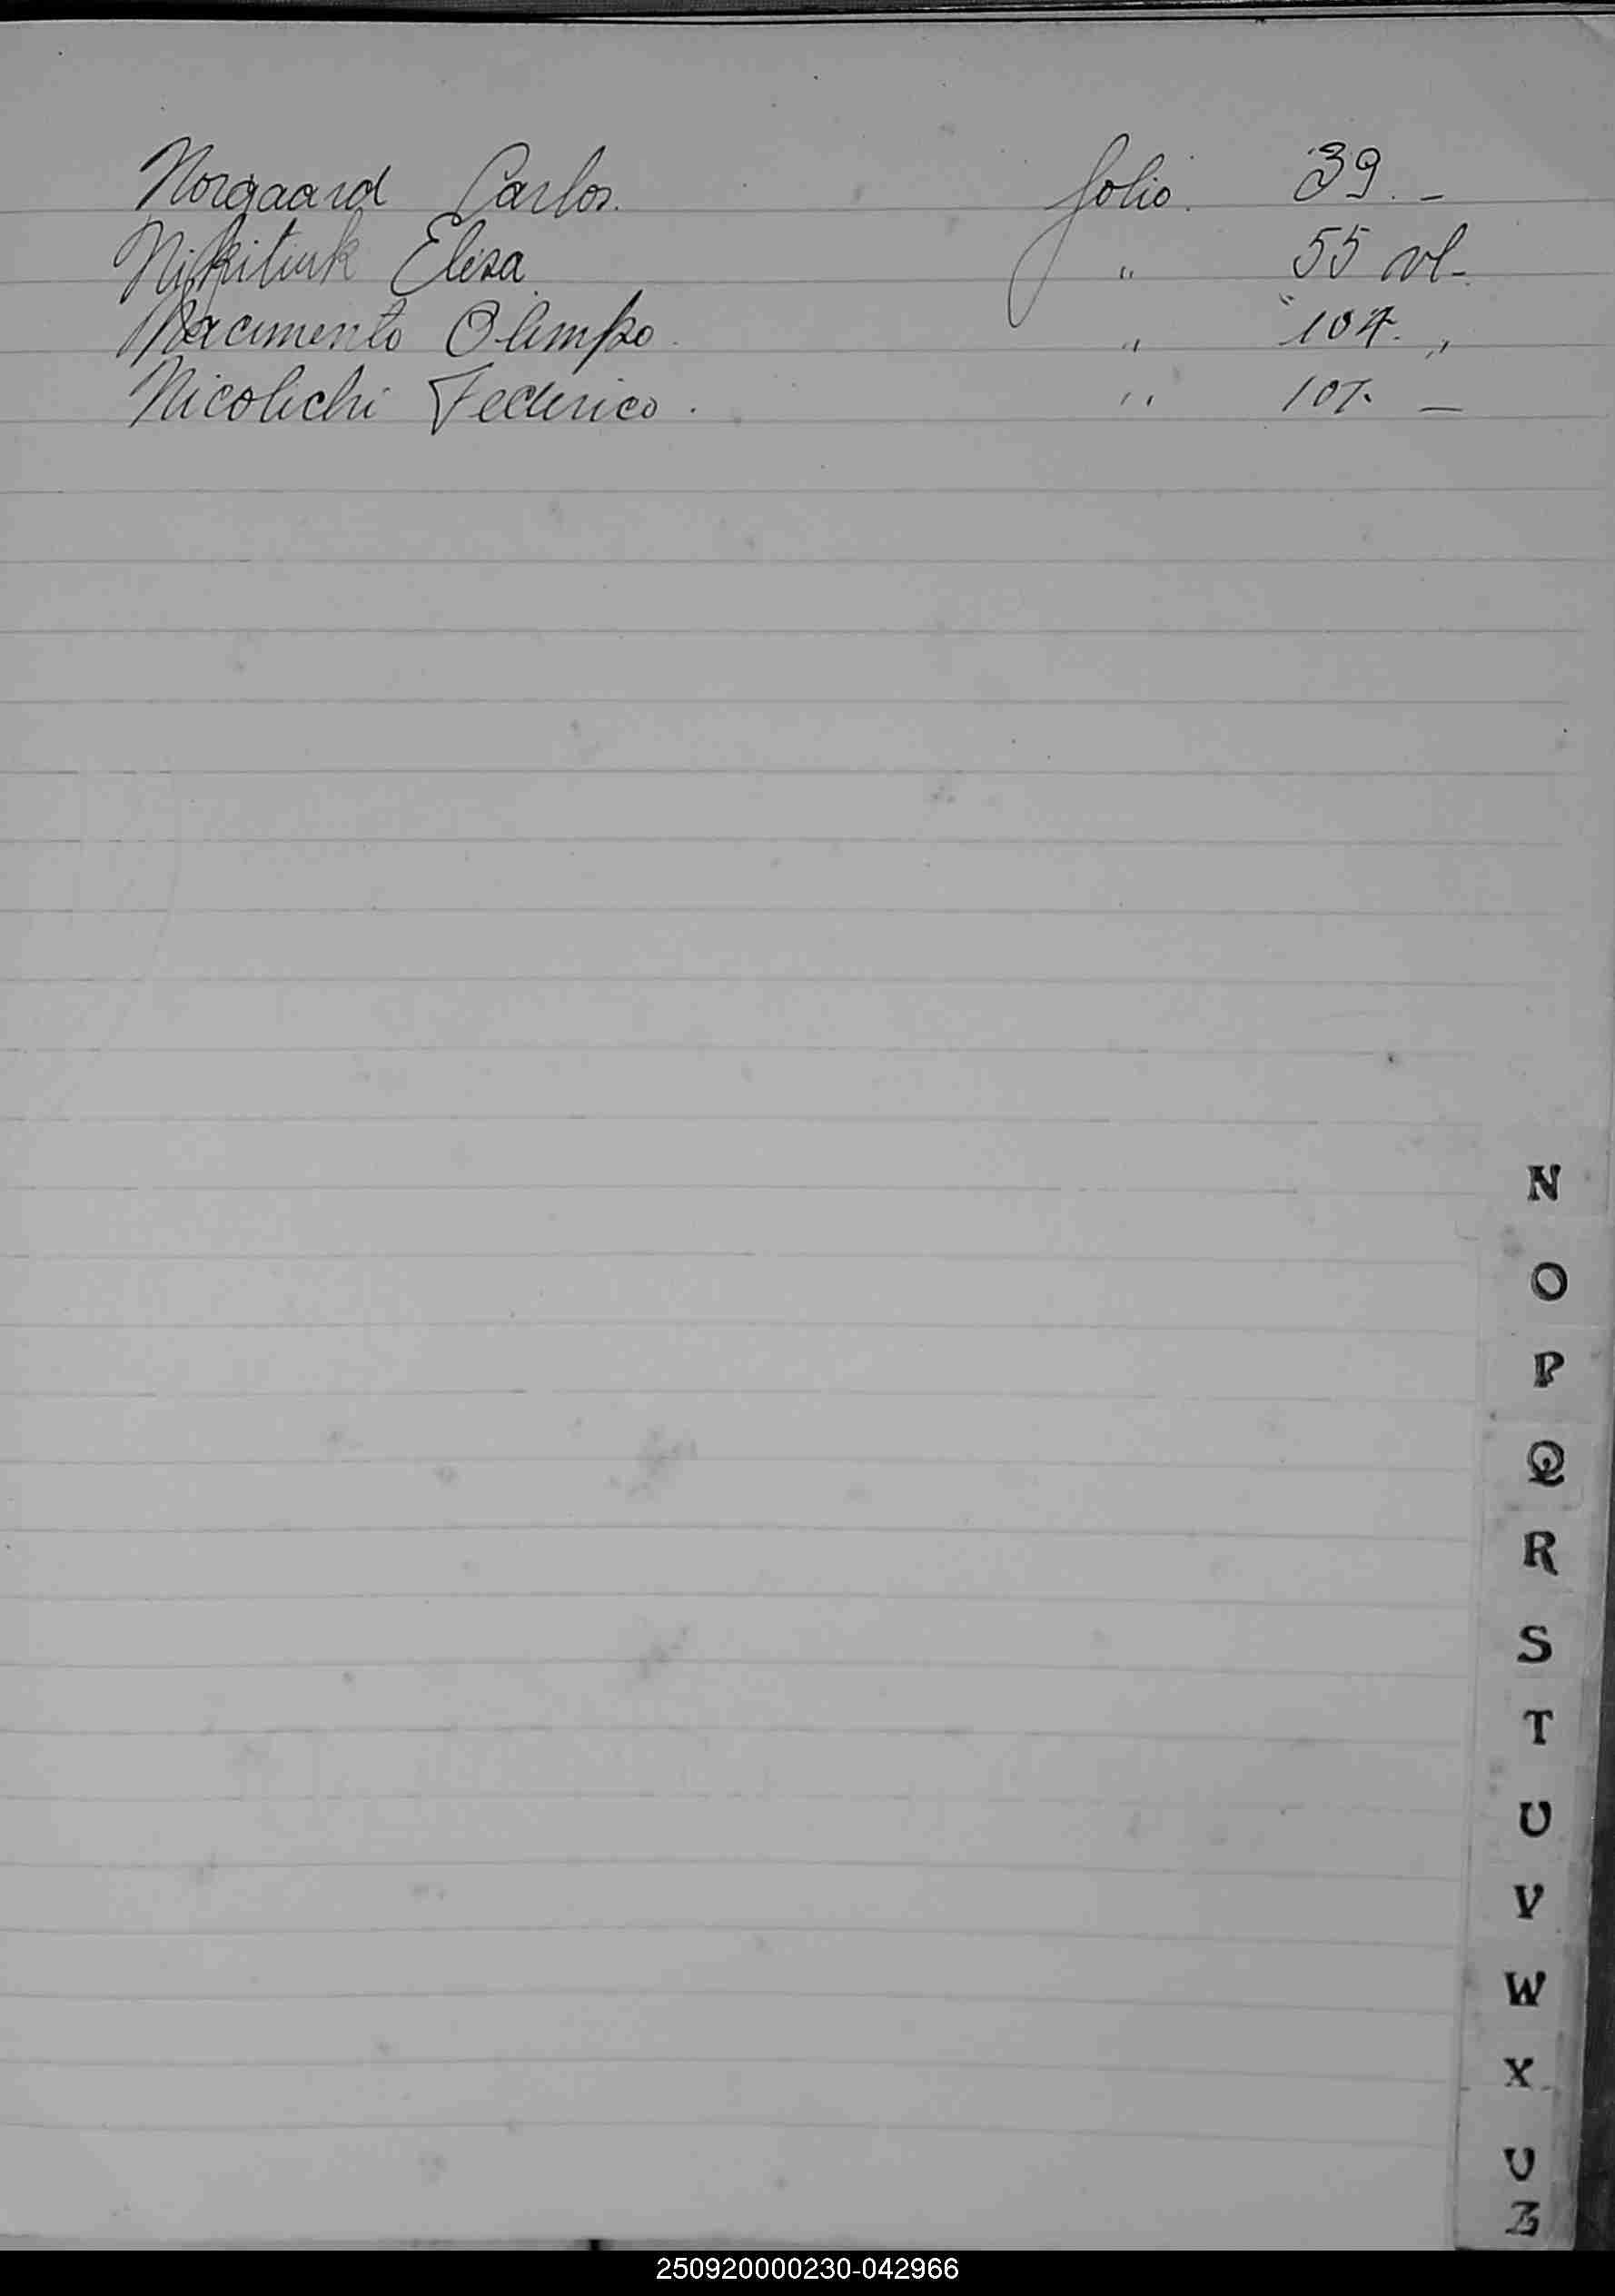 Norgaard Carlos. folio. 39. -
Nikitiuk Elisa " 55 vl-
Nacimento Olimpo. " " 104. "
Nicolichi Federico. " 107. —
N
O
P
Q
R
S
T
U
V
W
X
U
Z
250920000230-042966